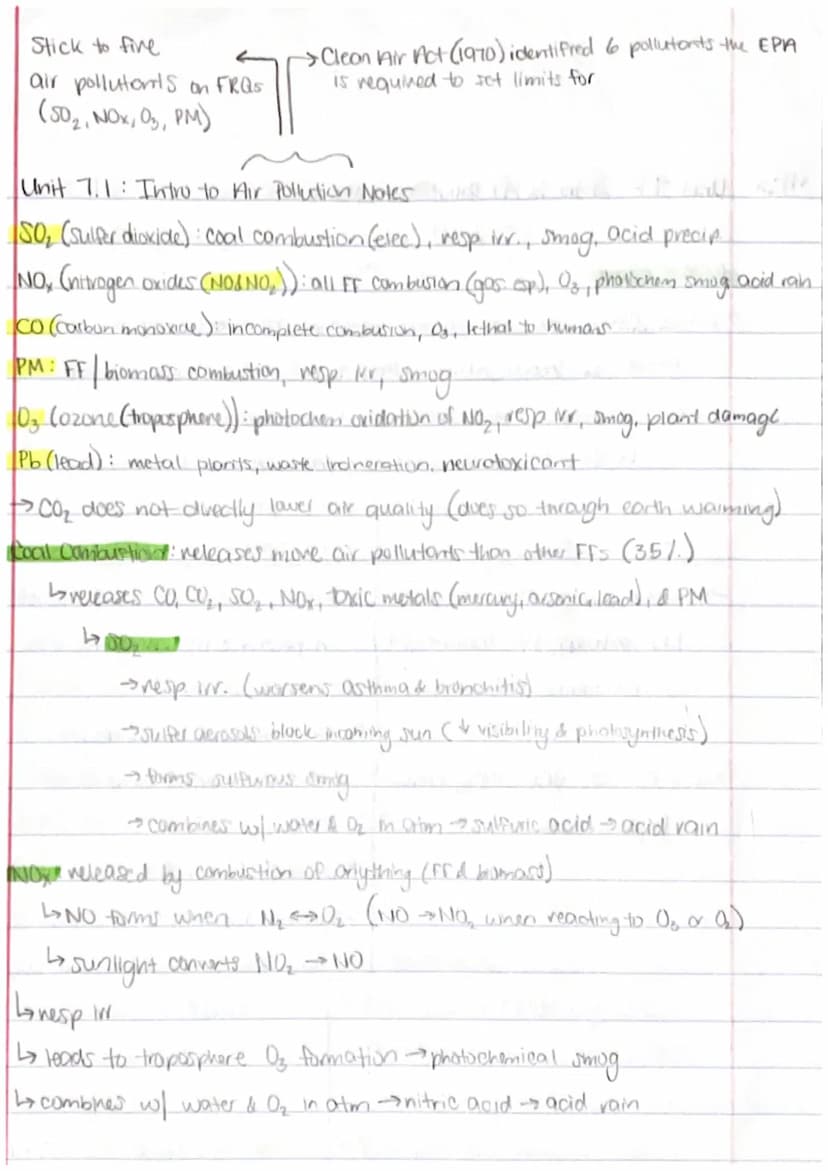 Stick to five
air pollutants on FRQs
(SO₂, NOx, O₃, PM)
→ Clean Air Act (1970) identified 6 pollutants the EPA
is required to set limits for
Unit 7.1: Intro to Air Pollution Notes
SO₂ (sulfer dioxide): coal combustion (elec), resp irr., smog, acid precip
NOx (nitrogen oxides (NO & NO₂)): all FF combusion (gas esp), O₃, photochem smog acid rain
CO (carbon monoxide): incomplete combusion, O₃, lethal to humans
PM: FF/biomass combustion, resp irr, smog
O₃ (ozone (troposphere)): photochem oxidation of NO₂, resp irr, smog, plant damage
Pb (lead): metal plants, waste incineration, neurotoxicant
→ CO₂ does not directly lower air quality (does so through earth warming)
Coal Combustion: releases more air pollutants than other FFs (35%)
↳ releases CO, CO₂, SO₂, NOx, toxic metals (mercury, arsenic, lead), & PM
↳ SO₂...
→ resp irr. (worsens asthma & bronchitis)
→ sulfer aerosols block incoming sun (↓ visibility & photosynthesis)
→ forms sulfurous smog
→ combines w/ water & O₂ in atm → sulfuric acid → acid rain
NOx: released by combustion of anything (FF & biomass)
↳ NO forms when N₂ ↔ O₂ (NO → NO₂ when reacting to O₃ or O₂)
↳ sunlight converts NO₂ → NO
↳ resp irr
↳ leads to troposphere O₃ formation → photochemical smog
↳ combines w/ water & O₂ in atm → nitric acid → acid rain